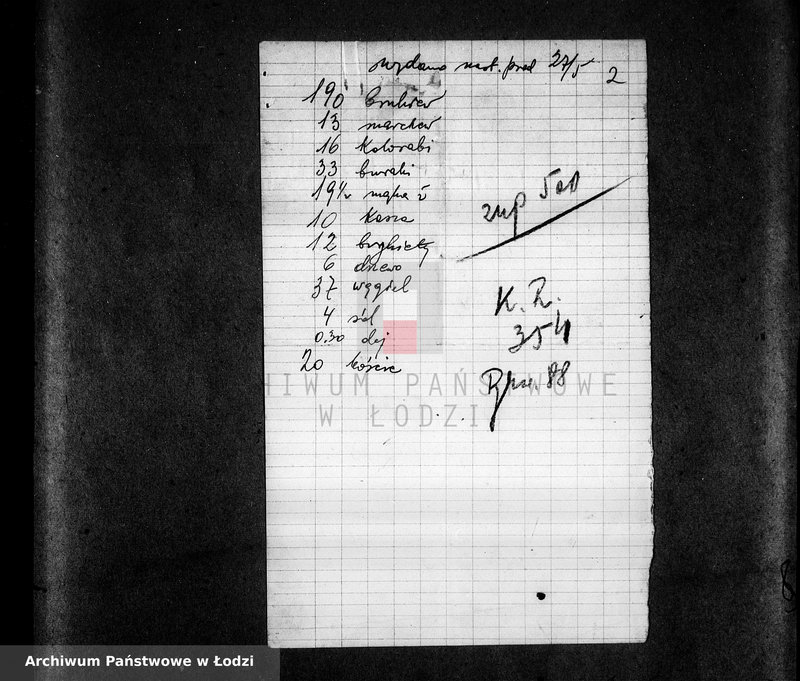 wydano nast. prod 27/5
2
190 brukiew
13 marchew
16 kolorabi
33 buraki
19½ mąka ż
10 kasza
12 brykiety
6 drzewo
37 węgiel
4 sól
0.30 olej
20 kości
zup 500
K. R.
354
88
ARCHIWUM PAŃSTWOWE
W ŁODZI
Archiwum Państwowe w Łodzi